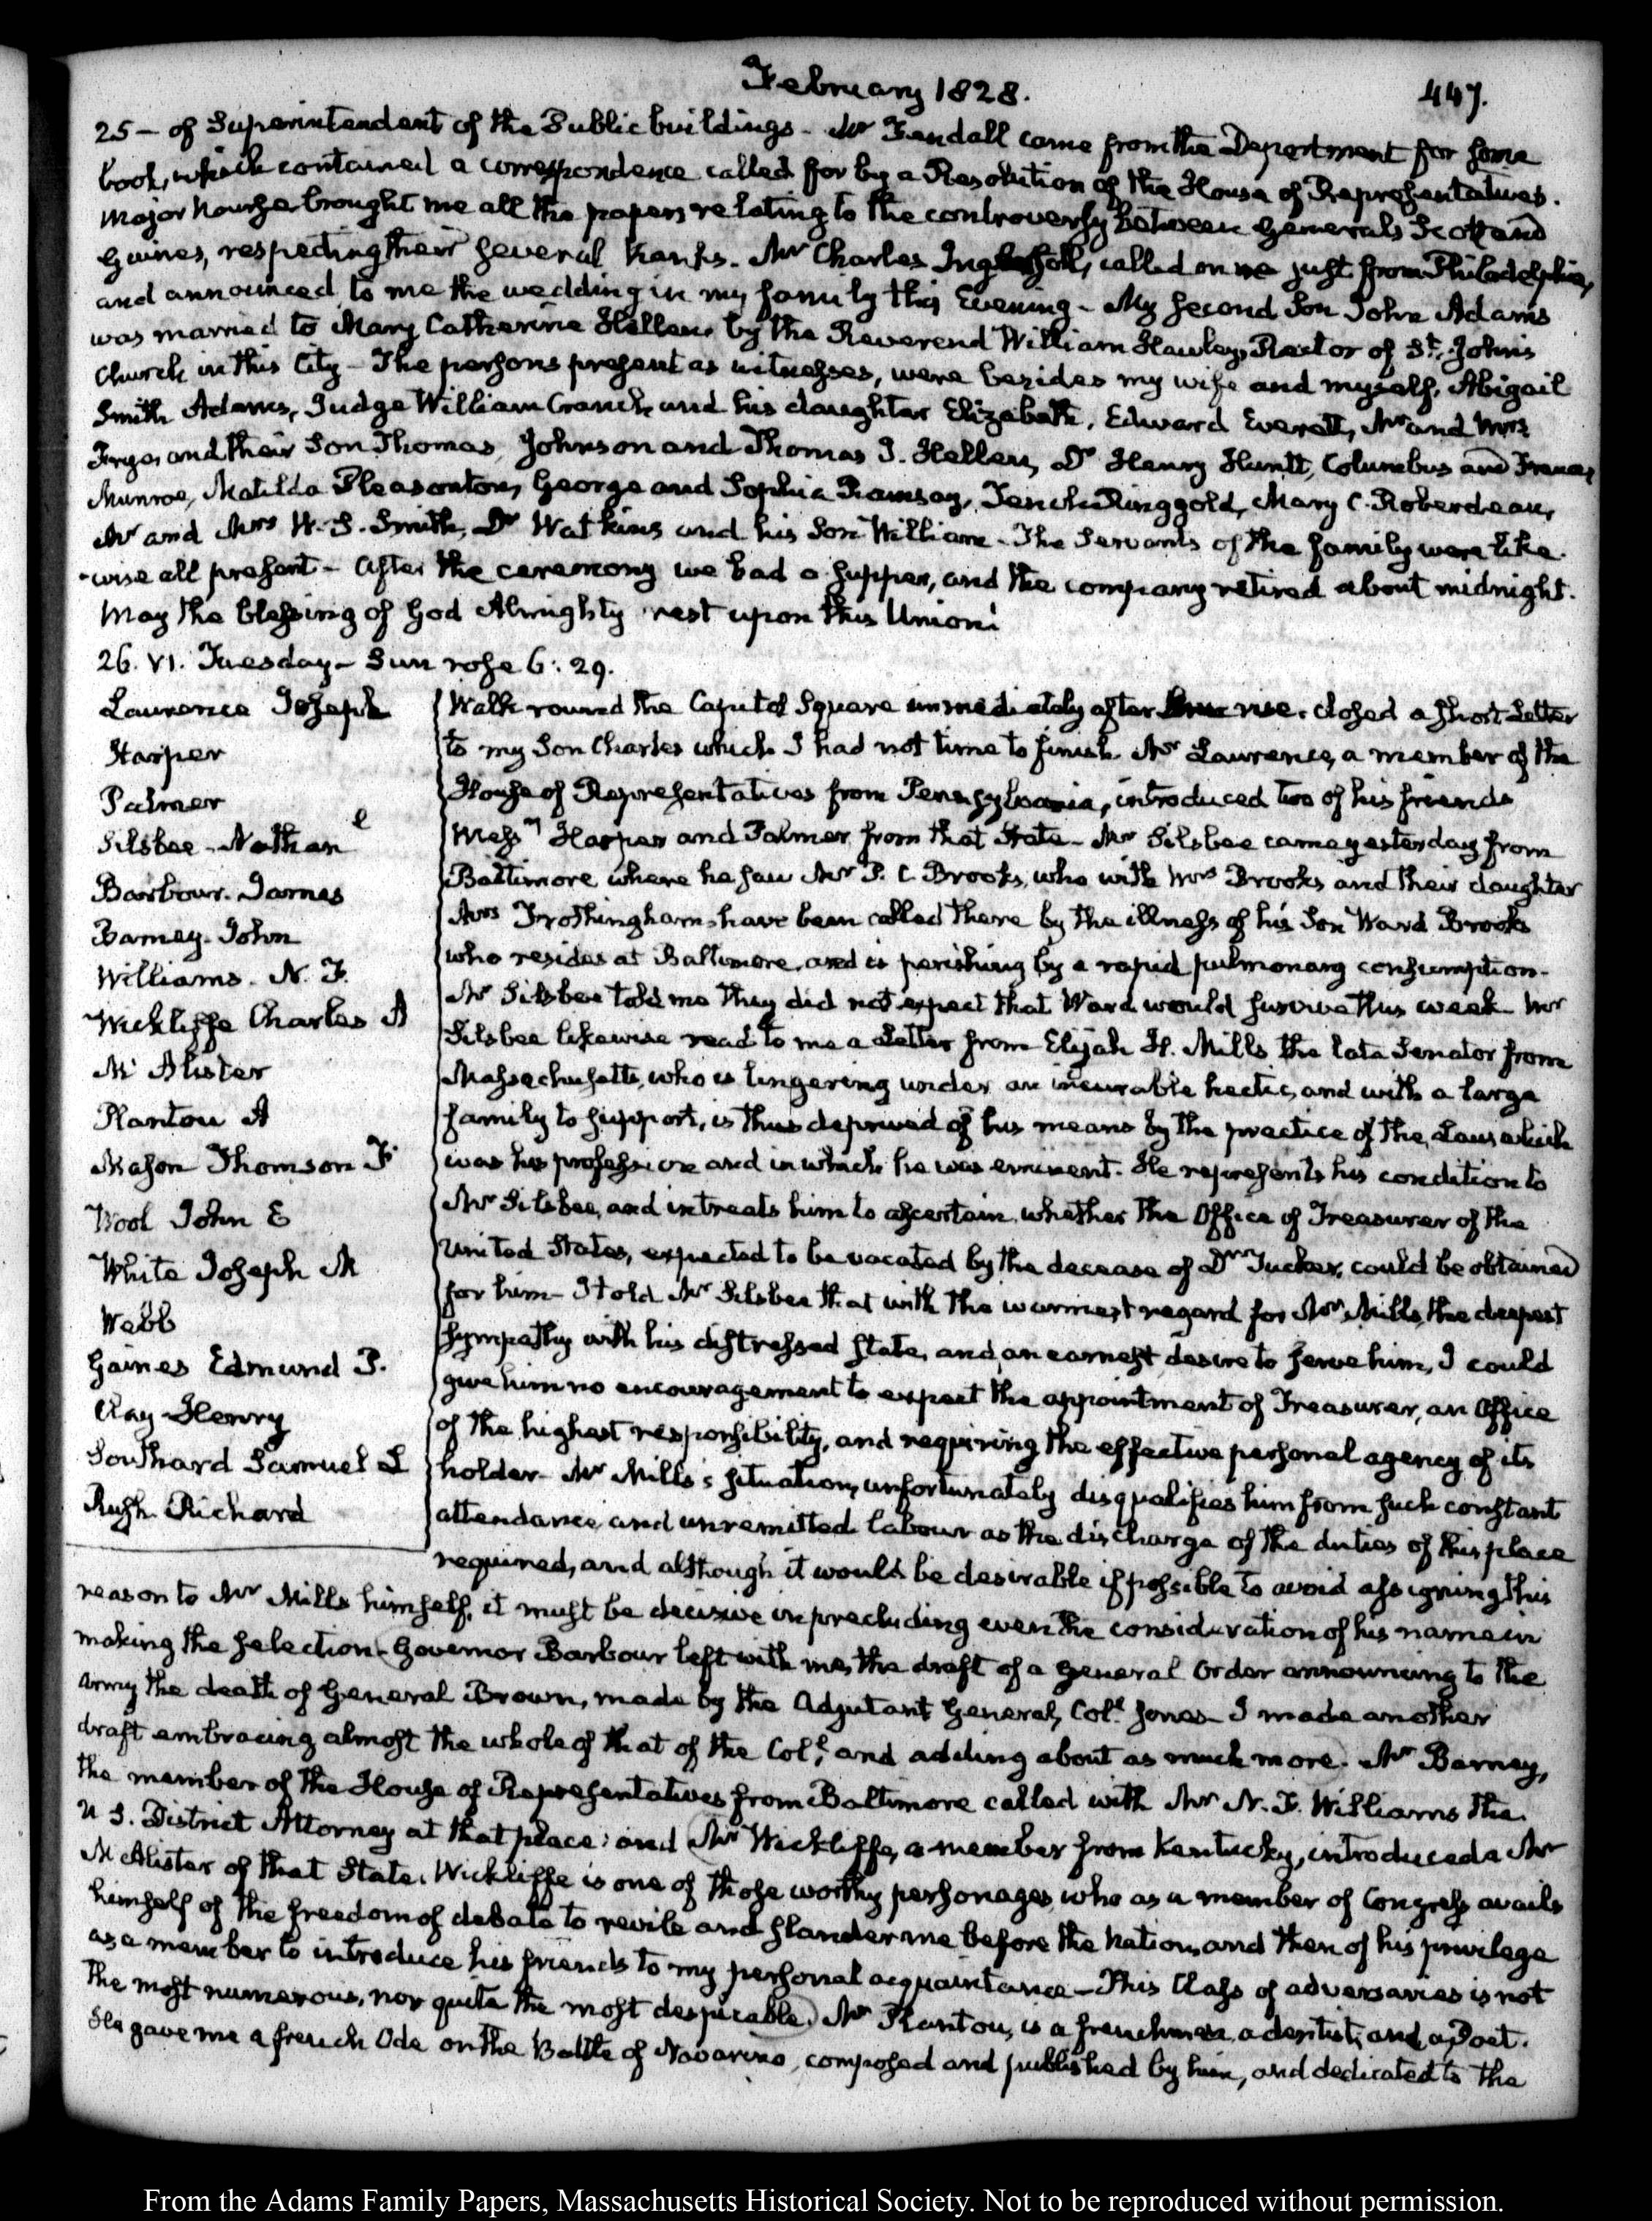 February 1828.
447.
25 – of Superintendent of the Public buildings – Mr Fendall came from the Department for some
book, which contained a correspondence called for by a Resolution of the House of Representatives.
Major Nourse brought me all the papers relating to the controversy between Generals Scott and
Gaines, respecting their several Ranks. Mr Charles Ingersoll, called on me just from Philadelphia,
and announced to me the wedding in my family this Evening – My second Son John Adams
was married to Mary Catherine Hellen, by the Reverend William Hawley, Rector of St. John's
Church in this City – The persons present as witnesses, were besides my wife and myself, Abigail
Smith Adams, Judge William Cranch and his daughter Elizabeth, Edward Everett, Mr and Mrs
Frye, and their Son Thomas, Johnson and Thomas J. Hellen, Dr Henry Huntt, Columbus and Frances
Munroe, Matilda Pleasonton, George and Sophia Ramsay, Tench Ringgold, Mary C. Roberdeau,
Mr and Mrs W. S. Smith, Dr Watkins and his Son William – The Servants of the family were like-
-wise all present – After the ceremony we had a supper, and the company retired about midnight.
May the blessing of God Almighty rest upon this Union!
26. VI. Tuesday – Sun rose 6:29.
Laurence Joseph
Harper
Palmer
Silsbee – Nathan e
Barbour. James
Barney. John
Williams. N. F.
Wickliffe Charles A
Mc Alister
Plantou A
Mason Thomson F.
Wool John E
White Joseph M
Webb
Gaines Edmund P.
Clay Henry
Southard Samuel L
Rush Richard
Walk round the Capitol Square immediately after rise. closed a short Letter
to my Son Charles which I had not time to finish. Mr Laurence, a member of the
House of Representatives from Pennsylvania, introduced two of his friends
Messrs Harper and Palmer from that State – Mr Silsbee came yesterday from
Baltimore where he saw Mr P. C. Brooks, who with Mrs Brooks, and their daughter
Mrs Frothingham have been called there by the illness of his Son Ward Brooks
who resides at Baltimore, and is perishing by a rapid pulmonary consumption –
Mr Silsbee told me they did not expect that Ward would survive this week Mr
Silsbee likewise read to me a Letter from Elijah H. Mills the late Senator from
Massachusetts, who is lingering under an incurable hectic, and with a large
family to support, is thus deprived of his means by the practice of the Law which
was his profession and in which he was eminent. He represents his condition to
Mr Silsbee, and intreats him to ascertain, whether the Office of Treasurer of the
United States, expected to be vacated by the decease of Dr Tucker, could be obtained
for him – I told Mr Silsbee that with the warmest regard for Mr Mills, the deepest
sympathy with his distressed state, and an earnest desire to serve him, I could
give him no encouragement to expect the appointment of Treasurer, an Office
of the highest responsibility, and requiring the effective personal agency of its
holder – Mr Mills's situation, unfortunately disqualifies him from such constant
attendance and unremitted labour as the discharge of the duties of this place
required, and although it would be desirable if possible to avoid assigning this
reason to Mr Mills himself, it must be decisive in precluding even the consideration of his name in
making the selection – Governor Barbour left with me, the draft of a General Order announcing to the
Army the death of General Brown, made by the Adjutant General, Coll. Jones – I made another
draft embracing almost the whole of that of the Coll. and adding about as much more. Mr Barney,
the member of the House of Representatives from Baltimore called with Mr N. F. Williams the
U S. District Attorney at that place: and Mr Wickliffe, a member from Kentucky, introduced a Mr
McAlister of that State. Wickliffe is one of those worthy personages who as a member of Congress avails
himself of the freedom of debate to revile and slander me before the Nation, and then of his privilege
as a member to introduce his friends to my personal acquaintance – This Class of adversaries is not
the most numerous, nor quite the most despicable. Mr Plantou, is a frenchman, a dentist, and a Poet.
He gave me a french Ode on the Battle of Navarino, composed and published by him, and dedicated to the
From the Adams Family Papers, Massachusetts Historical Society. Not to be reproduced without permission.